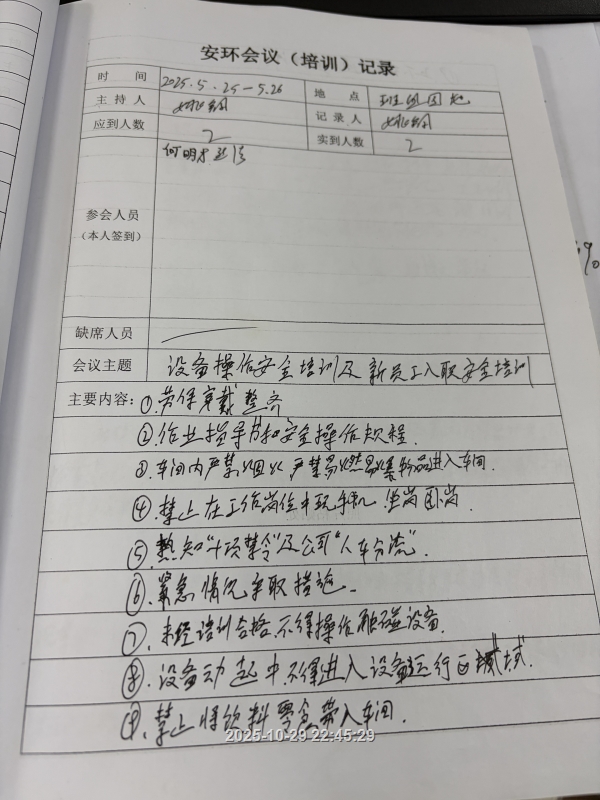 安环会议（培训）记录
时 间 2025.5.25-5.26 地 点
主持人 记录人
应到人数 2 实到人数 2
参会人员 何明才
（本人签到）
缺席人员
会议主题 设备操作安全培训及新员工入职安全培训
主要内容：①.劳保穿戴整齐
②作业指导书和安全操作规程.
③.车间内严禁烟火 严禁易燃易爆物品进入车间.
④.禁止在工作岗位中玩手机.坐岗卧岗.
⑤.熟知"十项禁令"及公司"人车分流".
⑥.紧急情况采取措施.
⑦.未经培训合格.不得操作触碰设备.
⑧.设备动起中不得进入设备运行区域.
⑨.禁止将饮料零食带入车间.
2025-10-29 22:45:29